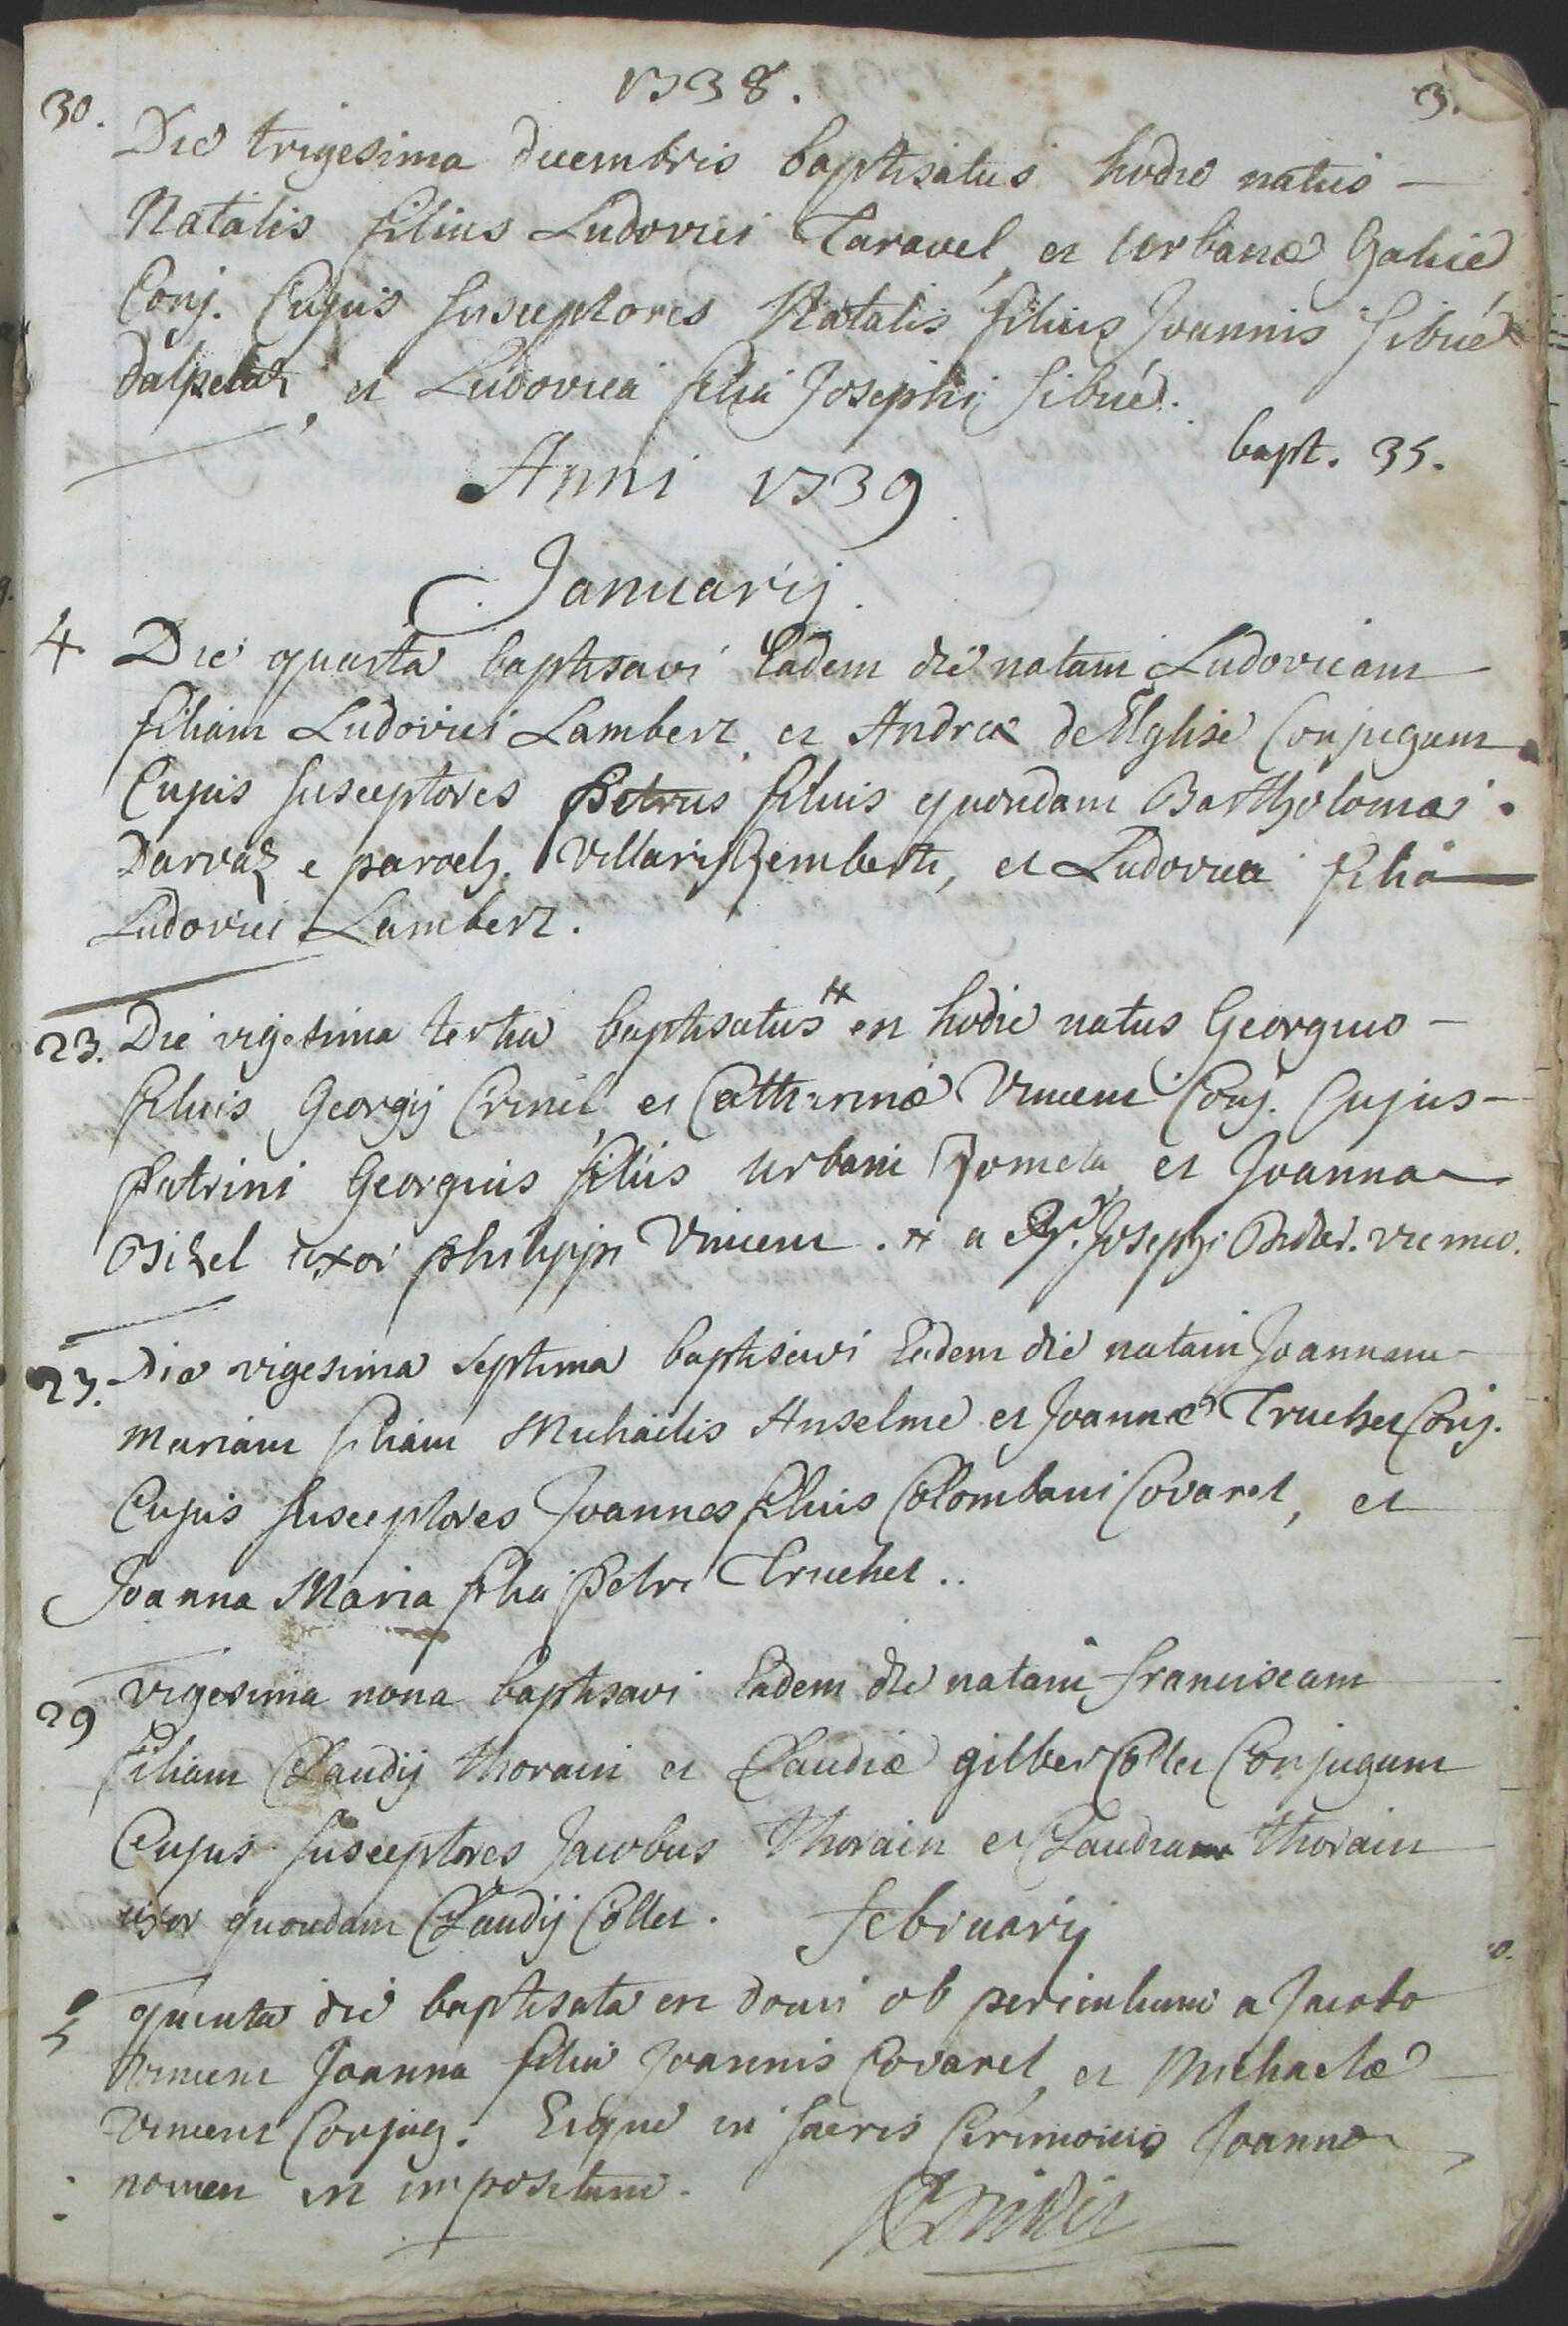 1738.
3.
30. Die trigesima decembris baptisatus hodie natus —
Natalis filius Ludovici Taravel, et Urbanæ Gahié
Conj. Cujus susceptores Natalis filius Joannis Sibué
dalpelaz, et Ludovica filia Josephi Sibué.
bapt. 35.
Anni 1739
Januarij.
4. Die quarta baptisavi Eadem die natam Ludovicam
filiam Ludovici Lambert et Andreæ deEglise Conjugum
Cujus susceptores Petrus filius quondam Bartholomæi
Darvaz e paroch. Villarigemberti, et Ludovica filia
Ludovici Lambert.
23. Die vigesima tertia baptisatus # est hodie natus Georgius —
filius Georgij Crinel et Catharinæ Vincent Conj. Cujus —
Patrini Georgius filius Urbani Jometa et Joanna
Osizel uxor philippi Vincent. # a Josephi vic meo.
27. Die vigesima septima baptisavi Eadem die natam Joannam
Mariam filiam Michaelis Anselme et Joannæ Truchet Conj.
Cujus susceptores Joannes filius Colombani Covaret, et
Joanna Maria filia Petri Truchet..
29 vigesima nona baptisavi Eadem die natam franciscam
filiam Claudij thorain et Claudiæ gilbert Collet Conjugum
Cujus susceptores Jacobus thorain et Claudia thorain
uxor quondam Claudij Collet. februarij
5 quinta die baptisata est domi ob periculum a Jacobo
Vincent Joanna filia Joannis Covaret, et Michaelæ
Vincent Conjug. Eique in sacris Cerimoniis Joanna
nomen est impositum.